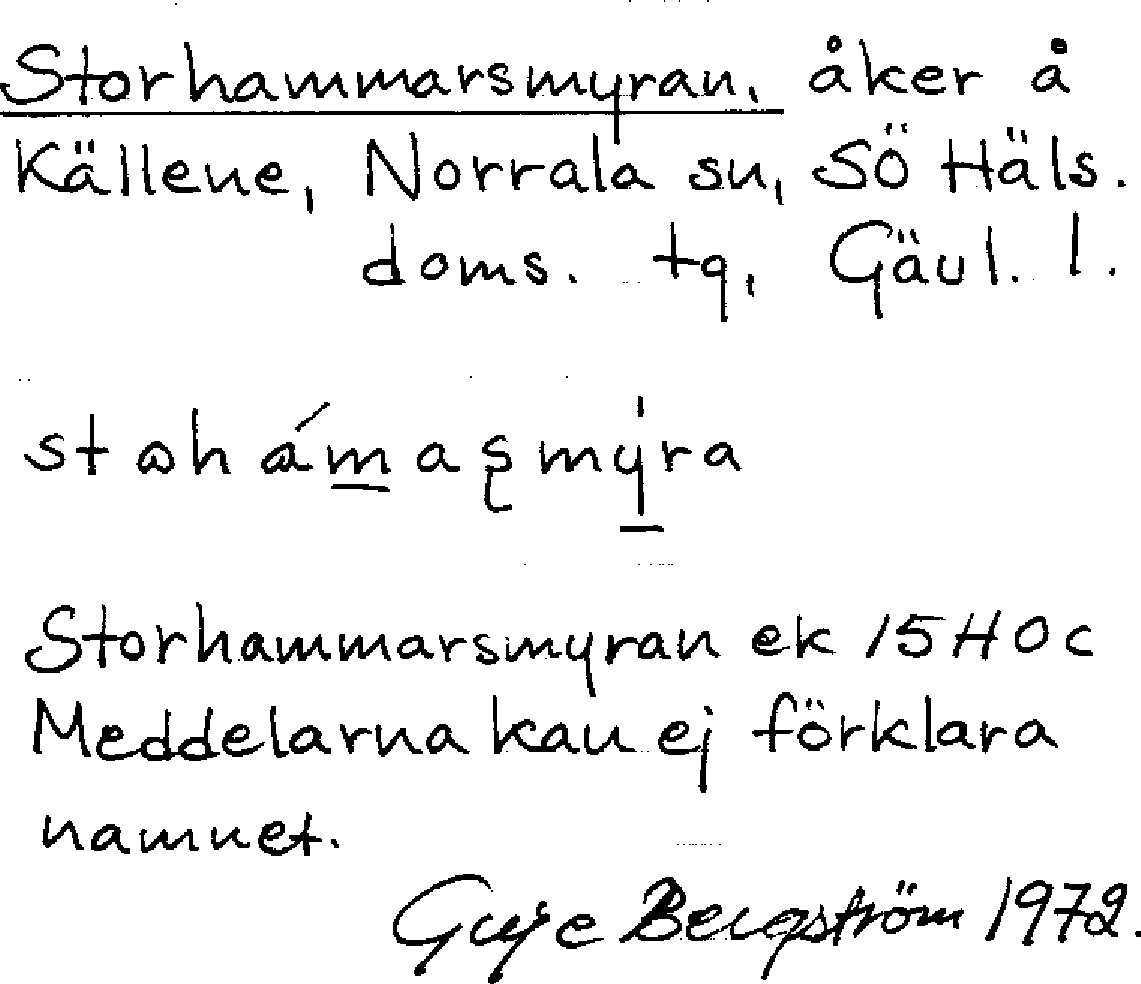 Storhammarsmyran, åker å
Källene, Norrala sn, SÖ Häls.
doms. tg, Gävl. l.
stɷhámaʂmýra
Storhammarsmyran ek 15H0c
Meddelarna kan ej förklara
namnet.
Bergström 1972.